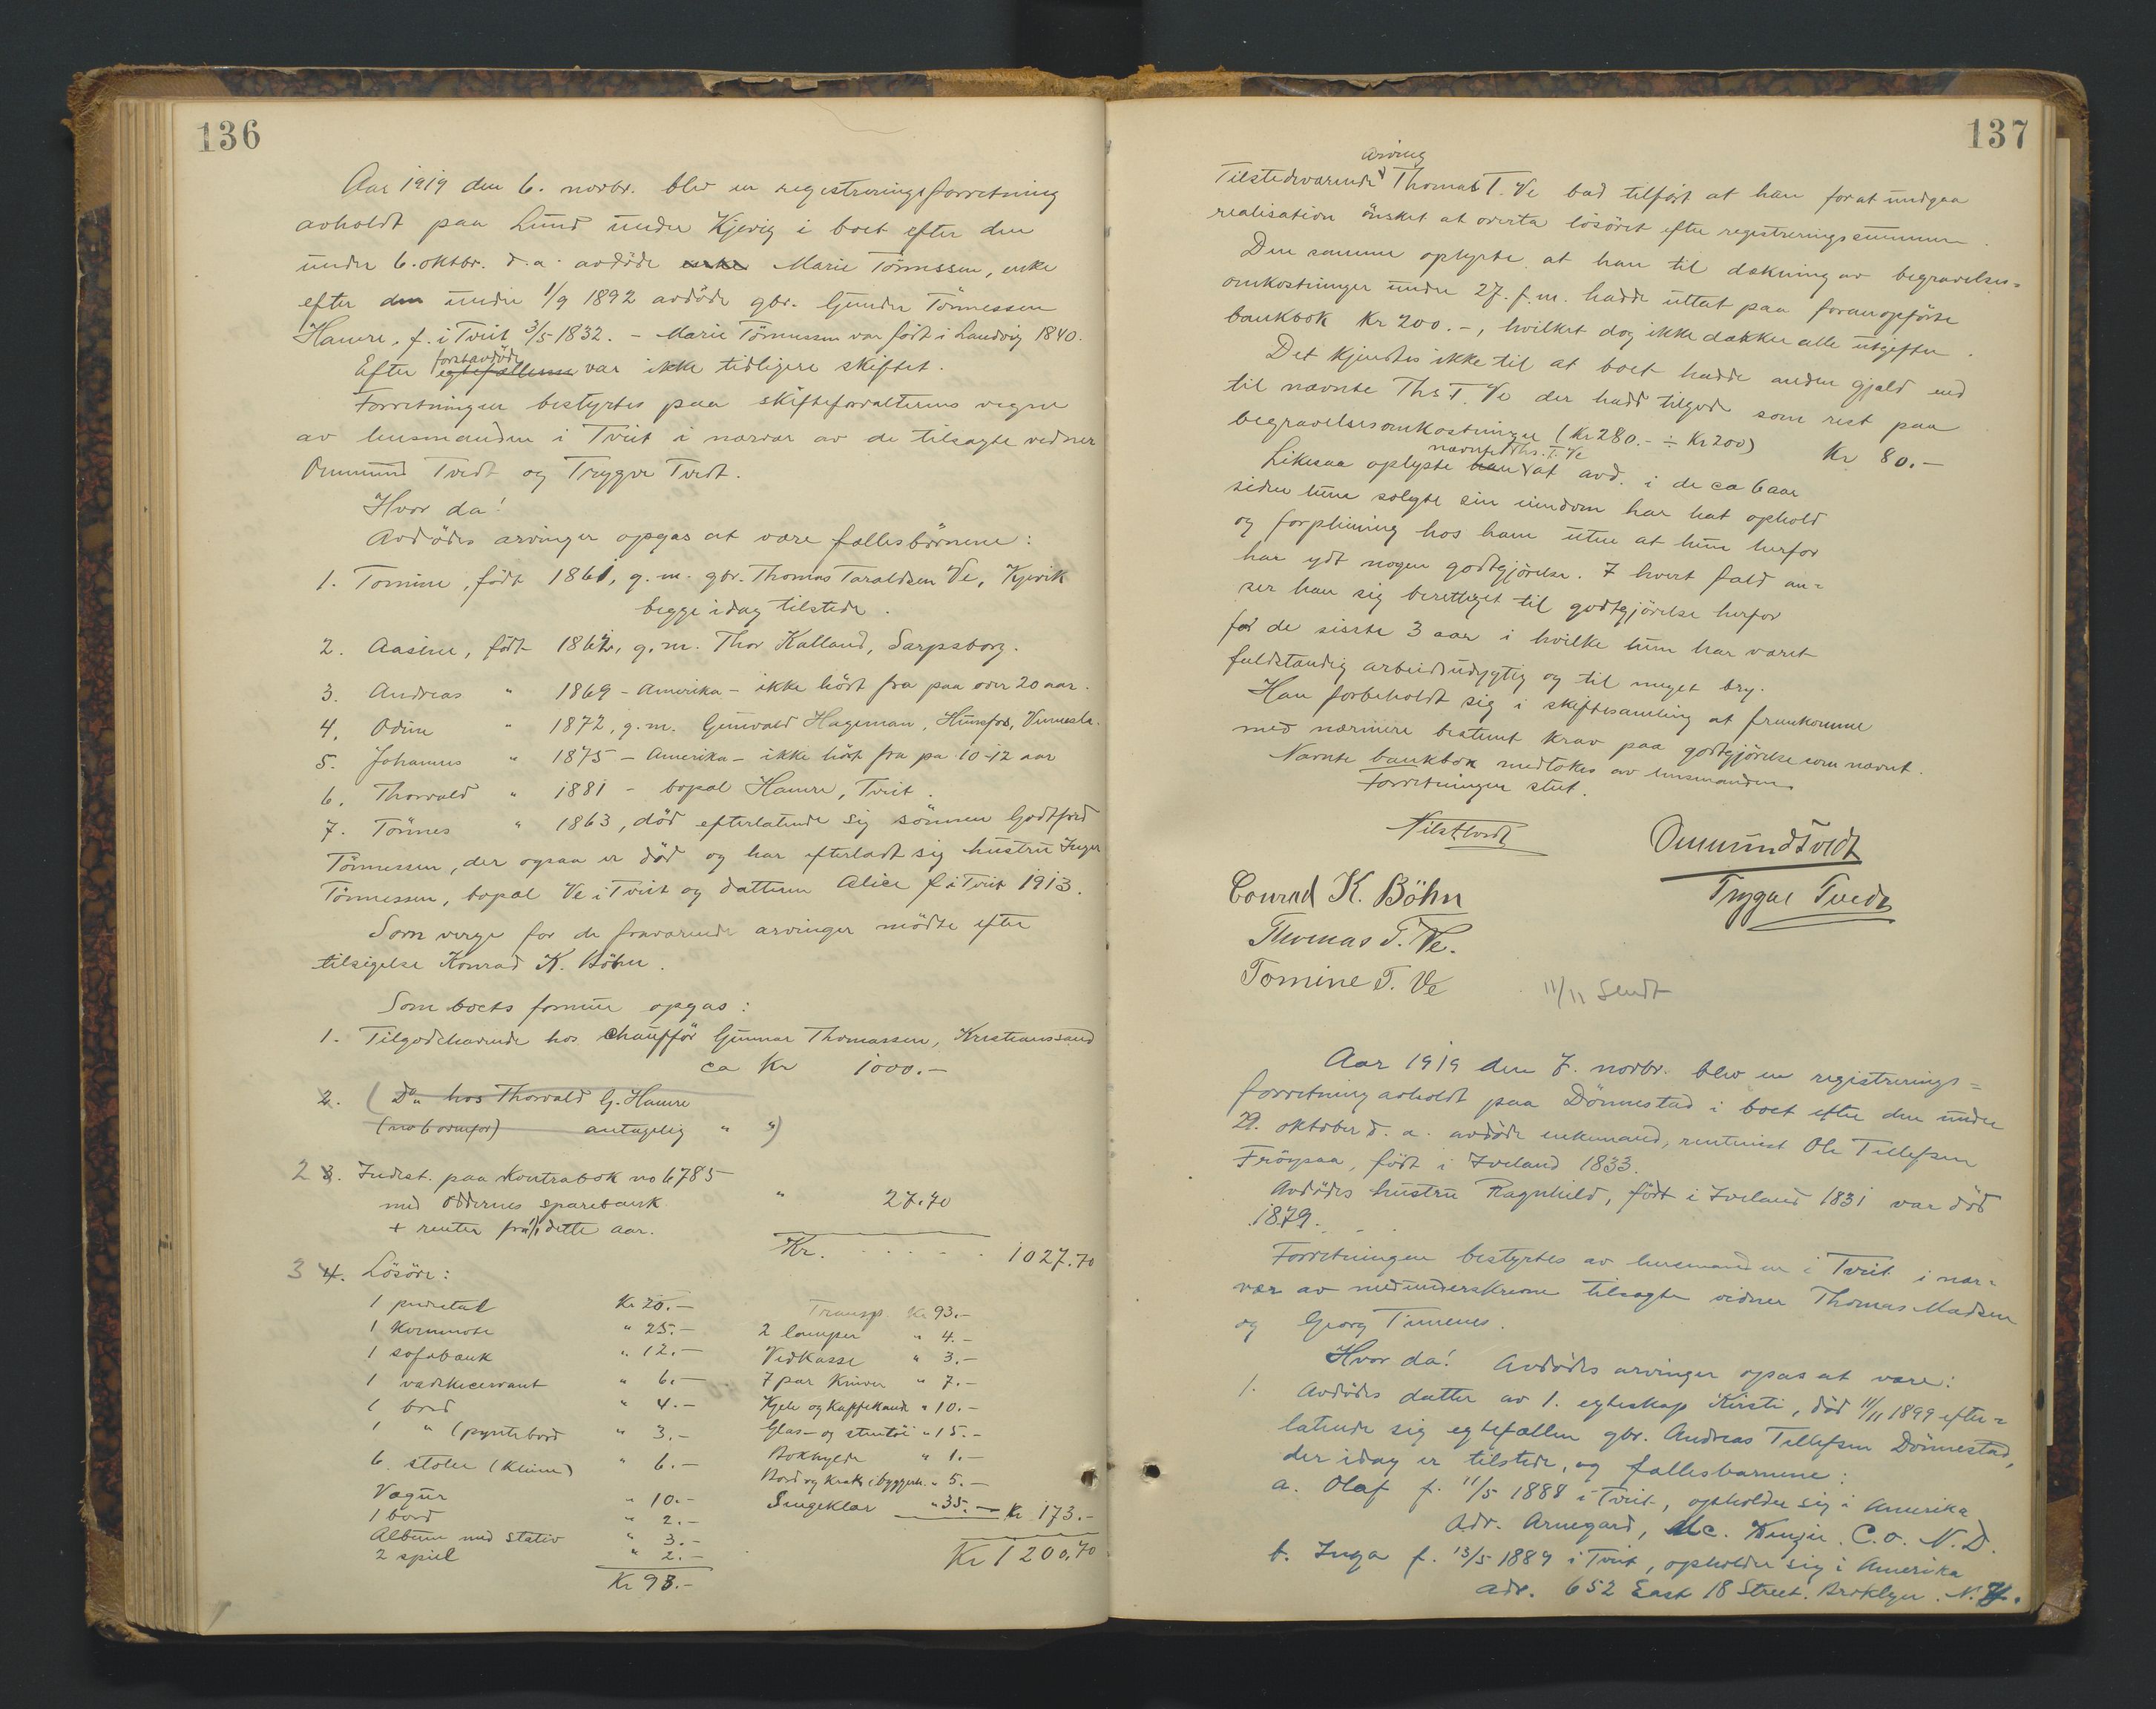 136
Aar 1919 den 6. novbr. blev en registreringsforretning
avholdt paa Lund under Kjevig i boet efter den
under 6. oktbr. d.a. avdöde enke Marie Tönnessen, enke
efter den under 1/9 1892 avdöde gbr. Gunder Tönnessen
Hamre, f. i Tveit 3/5 1832. – Marie Tönnessen var födt i Landvig 1840.
Efter egtefællerne förstavdöde var ikke tidligere skiftet.
Forretningen bestyrtes paa skifteforvalterens vegne
av lensmanden i Tveit i nærvær av de tilsagte vidner
Ommund Tvedt og Trygve Tvedt.
Hvor da!
Avdödes arvinger opgas at være fællesbörnene:
1. Tomine, födt 1861, g.m. gbr. Thomas Taraldsen Ve, Kjevik
begge idag tilstede.
2. Aasine, födt 1867, g.m. Thor Kalland, Sarpsborg.
3. Andreas " 1869 – Amerika – ikke hört fra paa over 20 aar.
4. Odine " 1872, g.m. Gunvald Hageman, Hunsfos, Vennesla.
5. Johannes " 1875 – Amerika – ikke hört fra pa 10-12 aar
6. Thorvald " 1881 – bopæl Hamre, Tveit.
7. Tönnes " 1863, död efterlatende sig sönnen Godtfred
Tönnessen, der ogsaa er död og har efterladt sig hustru Inger
Tönnessen, bopæl Ve i Tveit og datteren Alice f. i Tveit 1913.
Som verge for de fraværende arvinger mödte efter
tilsigelse Konrad K. Böhn.
Som boets formue opgas:
1. Tilgodehavende hos chaufför Gunnar Thomassen, Kristianssand
ca Kr 1000.–
2. (Do hos Thorvald G. Hamre
antagelig " ")
2 3. Indest. paa Kontrabok no 6785
med Oddernes sparebank " 27.70
+ renter fra 1/1 dette aar.
Kr. . . . . . 1027.70
3 4. Lösöre:
1 Kr 20.– Transp. Kr 93.–
1 Kommode " 25.– 2 lamper " 4.–
1 sofabænk " 12.– Vedkasse " 3.–
1 vaskeservant " 6.– 7 par Kniver " 7.–
1 bord " 4.– Kjele og Kaffekande " 10.–
1 " (pyntebord " 3.– Glas- og stentöi " 15.–
6 stoler " 6.– Bokhylde " 1.–
Vægur " 10.– Bord og krak i byggerh. " 5.–
1 bord " 2.– Sengeklær " 35.– Kr 173.–
Album med stativ " 3.–
2 speil " 2.– Kr 1200,70
Kr 93.–
137
Tilstedeværende arving Thomas T. Ve bad tilfört at han for at undgaa
realisation önsket at overta lösöret efter registreringssummen.
Den samme oplyste at han til dækning av begravelses=
omkostninger under 27. f.m. hadde uttat paa foranopförte
bankbok Kr 200.–, hvilket dog ikke dækker alle utgifter.
Det kjendtes ikke til at boet hadde anden gjæld end
til nævnte Ths T. Ve der hadde tilgode som rest paa
begravelsesomkostninger (Kr 280.– ÷ Kr 200) Kr 80.–
Likesaa oplyste han nævnte Ths. T. Ve at avd. i de ca 6 aar
siden hun solgte sin eiendom har hat ophold
og forpleining hos ham uten at hun herfor
har ydt nogen godtgjörelse. I hvert fald an=
ser han sig berettiget til godtgjörelse herfor
for de sisste 3 aar i hvilke hun har været
fuldstændig arbeidsudygtig og til meget bry.
Han forbeholdt sig i skiftesamling at fremkomme
med nærmere bestemt krav paa godtgjörelse som nævnt.
Nævnte bankbok medtokes av lensmanden
Forretningen slut.
Ommund Tvedt
Conrad K. Böhn Trygve Tvedt
Thomas T. Ve.
Tomine T. Ve
11/11 Sendt
Aar 1919 den 7. novbr. blev en registrerings=
forretning avholdt paa Dönnestad i boet efter den under
29. oktober d.a. avdöde enkemand, rentenist Ole Tellefsen
Fröysaa, födt i Iveland 1833.
Avdödes hustru Ragnhild, födt i Iveland 1831 var död
1879.
Forretningen bestyrtes av lensmanden i Tveit i nær=
vær av medunderskrevne tilsagte vidner Thomas Madsen
og Georg Timenes.
Hvor da! Avdödes arvinger opgas at være:
1. Avdödes datter av 1. egteskap Kirsti, död 11/11 1899 efter=
latende sig egtefællen gbr. Andreas Tellefsen Dönnestad,
der idag er tilstede, og fællesbarnene:
a. Olaf f. 11/5 1888 i Tveit, opholder sig i Amerika
Adr. Arnegard, Mc. Kenzie. C.o. N.D.
b. Inga f. 13/5 1889 i Tveit, opholder sig i Amerika
adr. 652 East 18 Street. Broklyn. N.Y.